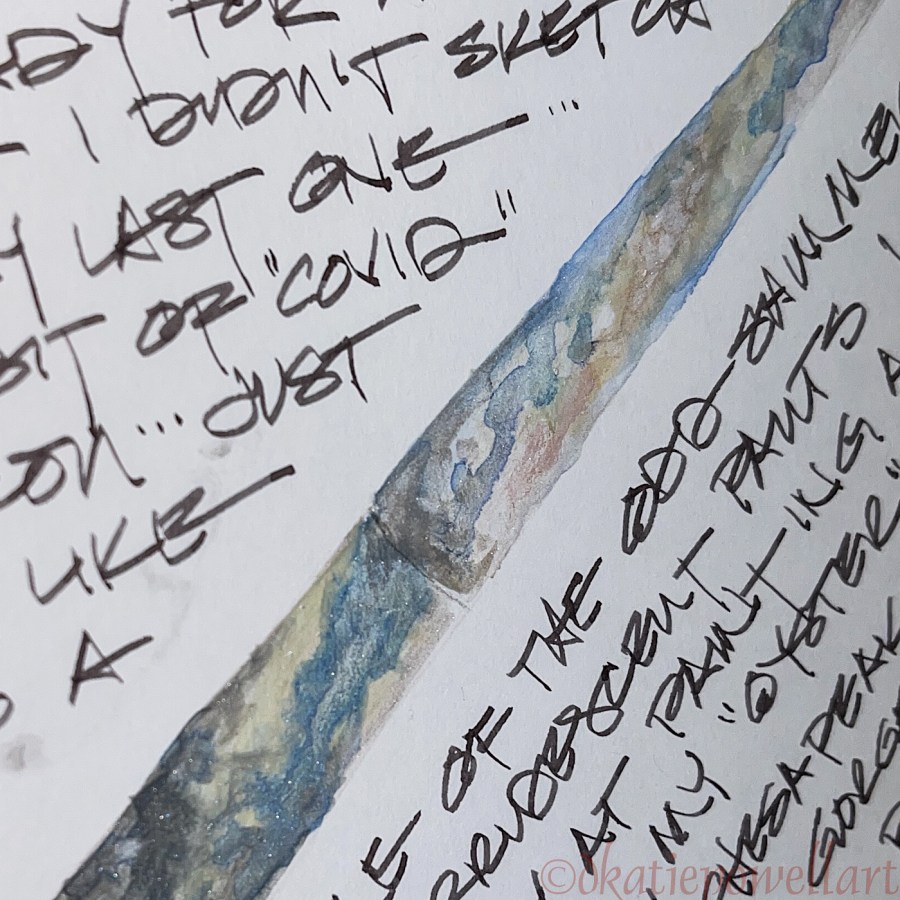 FOR
I DIDN'T SKETCH
LAST ONE ...
OF "COVID"
... JUST
LIKE
A
OF THE ODD-BALL
RRIDESCENT PAINTS I
AT PAINTING A
MY "OYSTER"
HESAPEAK
GORGE
©dkatiepowellart